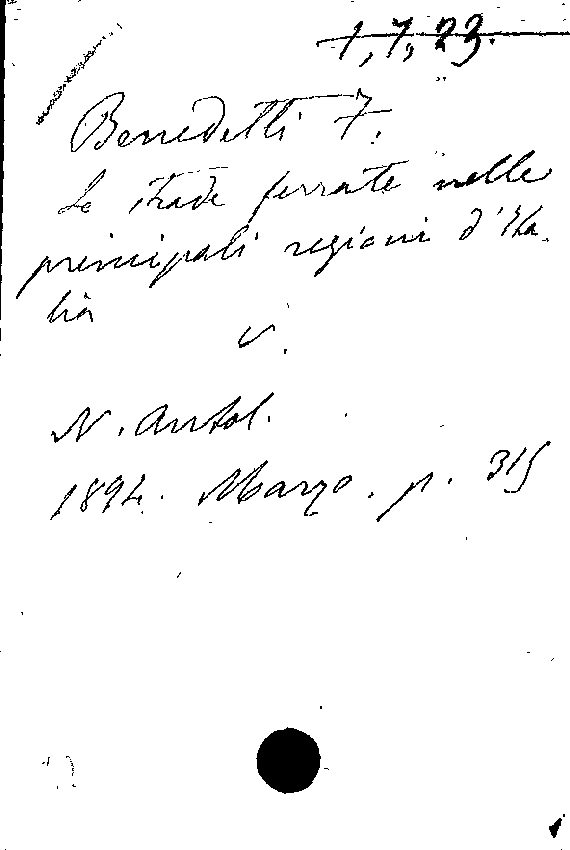 1, 7, 23.
Benedetti F.
Le strade ferrate nelle
principali regioni d'Ita-
lia
v.
N. Antol.
1894. Marzo. p. 315